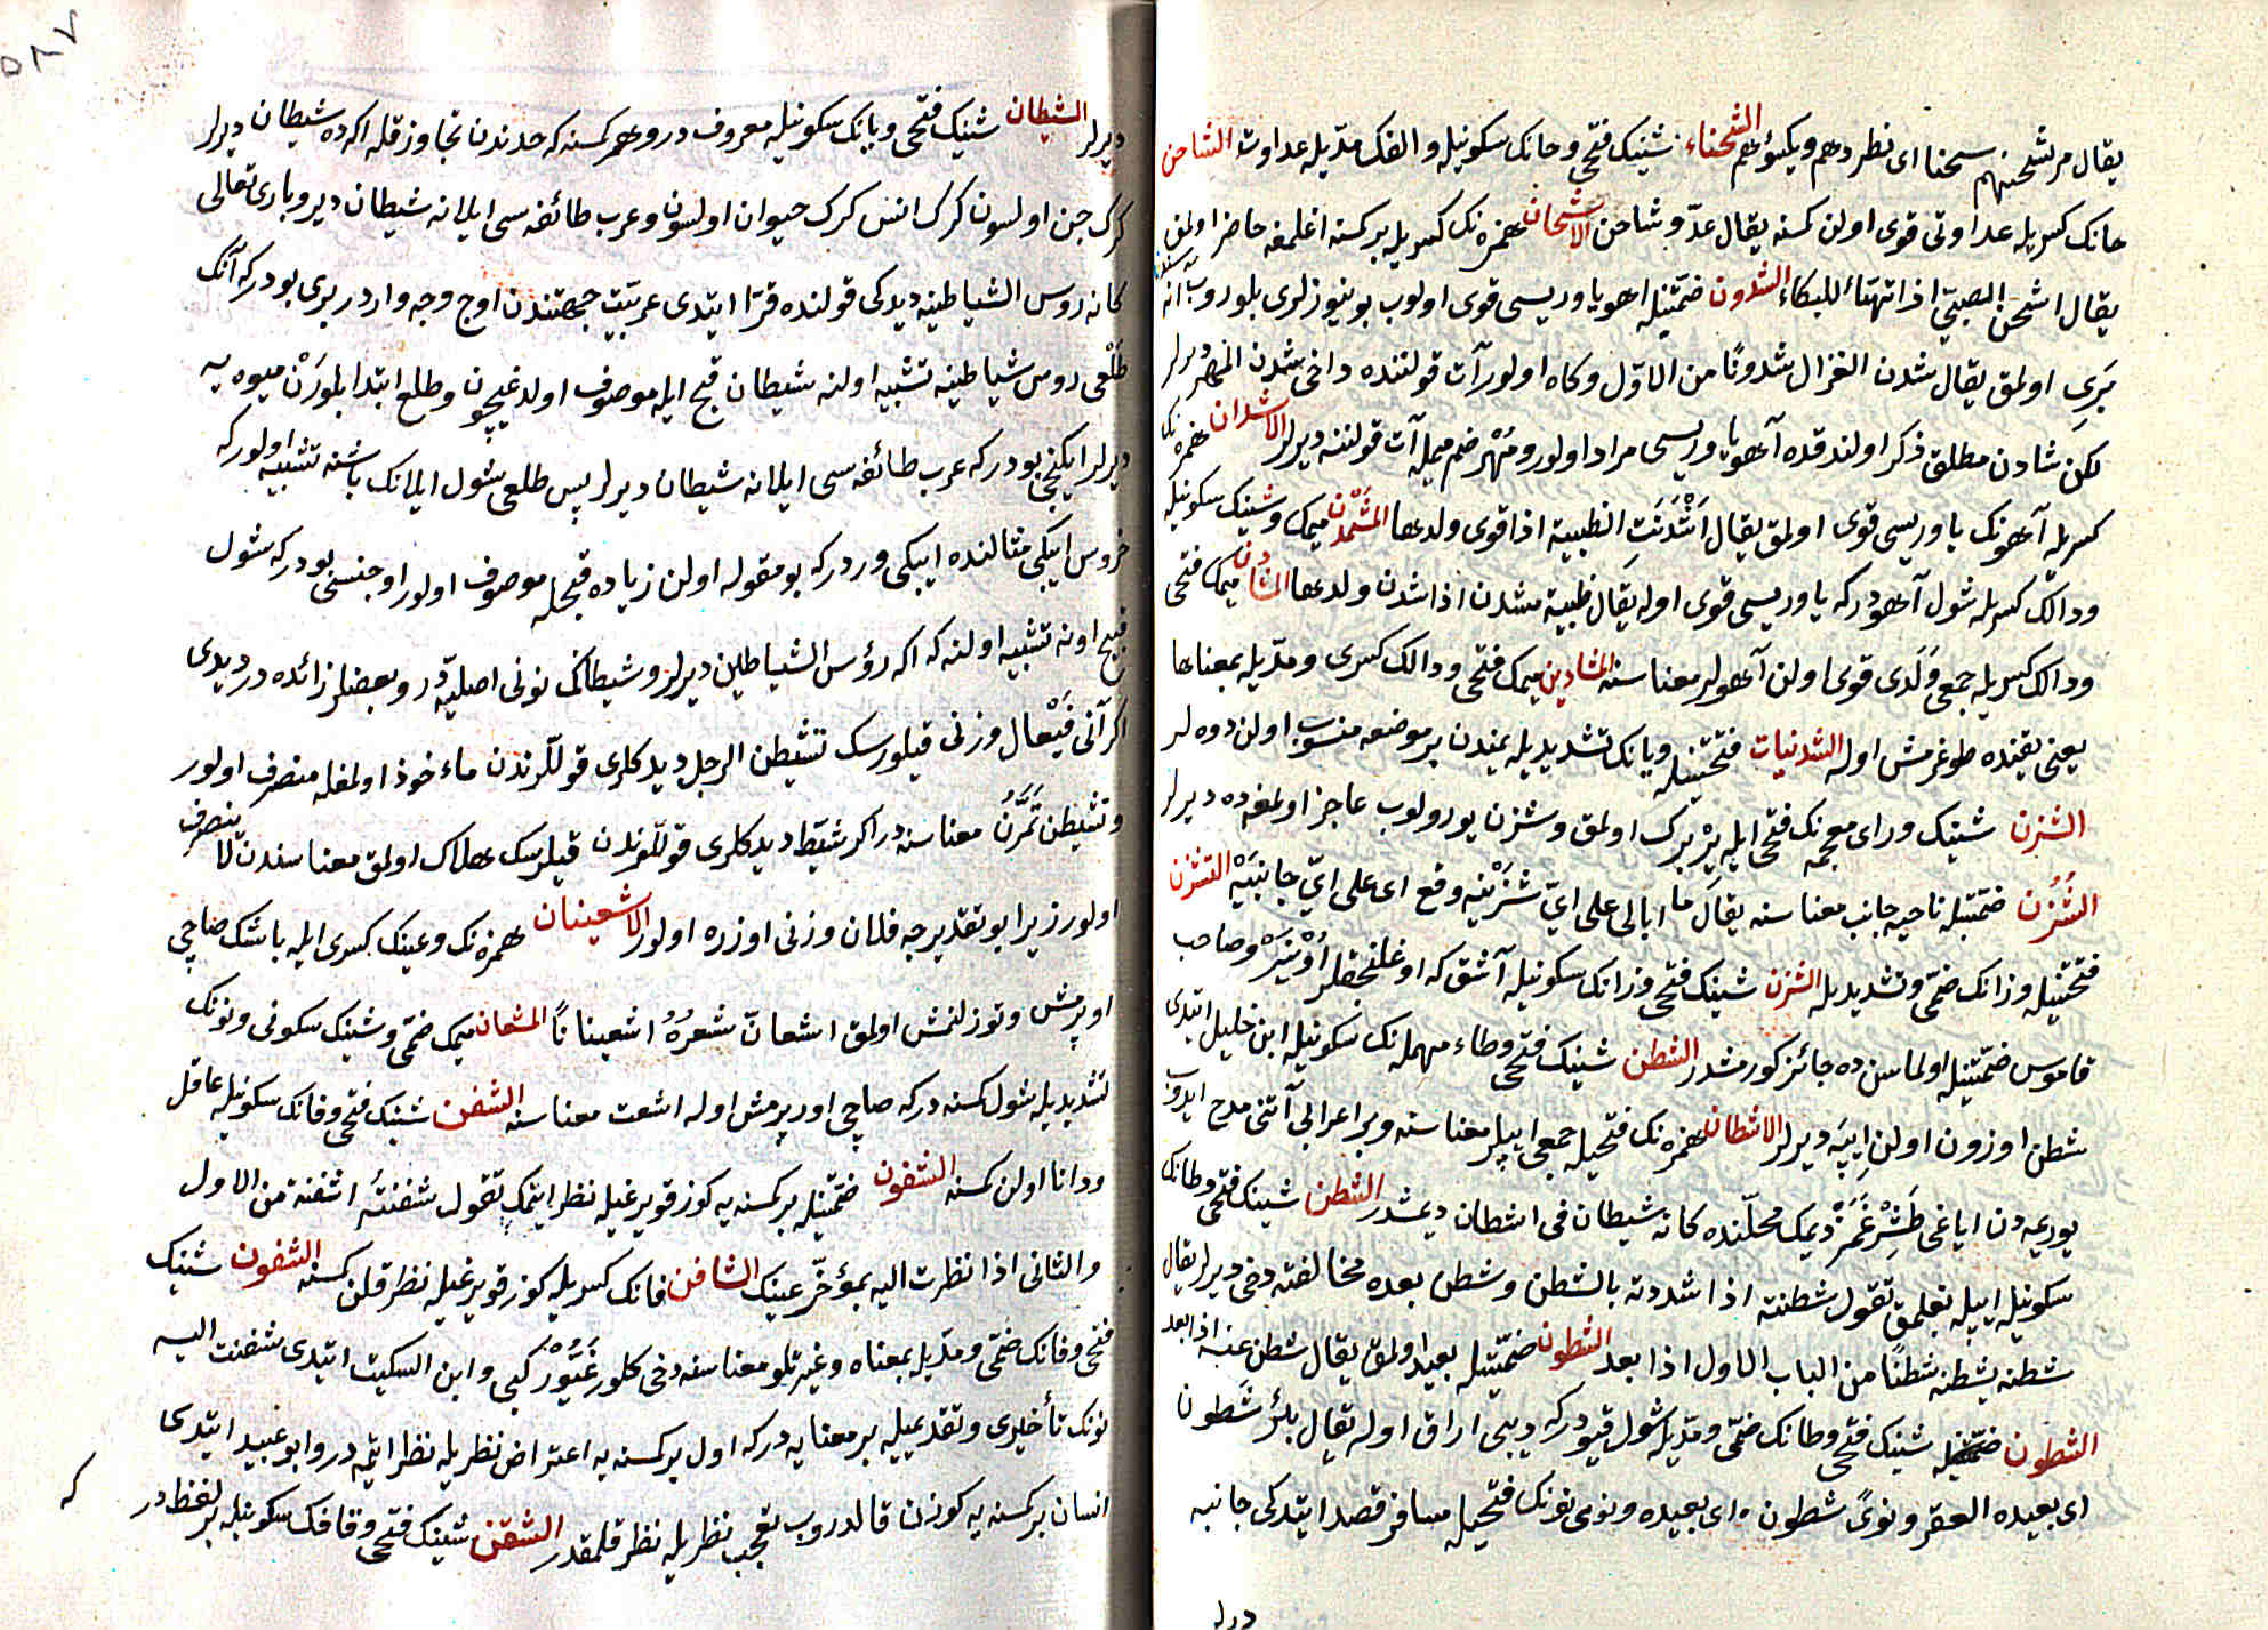 يقال مر يشحنهم سحنا اى نطردهم ويكسؤهم الشحناء شينك فتحى وحانك سكونيله والفك مدّيله عداوت الشاحن
حانك كسريله عداوتى قوى اولن كمسنه يقال عدوّ شاحن الاشحان همزه نك كسريله بر كمسنه اغلمغه حاضر اولمق
يقال اشحن الصبىّ اذا تهيّأ للبكاء الشدون ضمّتيله اهو ياوريسى قوى اولوب بوينوزلرى بلوروب انه سندن
بَرِى اولمق يقال شدن الغزال شدونًا من الاوّل وكاه اولور آت قولننده داخى شدن المهر ديرلر
لكن شادن مطلق ذكر اولندقده آهو ياوريسى مراد اولور ومُهْر ضم ميمله آت قولننه ديرلر الاشدان همزه نك
كسريله آهونك ياوريسى قوى اولمق يقال اَشْدَنَت الظبية اذا قوى ولدها المُشْدِن ميمك وشينك سكونيله
ودالك كسريله شول آهودركه ياوريسى قوى اوله يقال ظبية مشدن اذا شدن ولدها المشادن ميمك فتحى
ودالك كسريله جمعى وَلَدى قوى اولن آهولر معناسنه المشادين ميمك فتحى ودالك كسرى ومدّيله بمعناها
يعنى يقنده طوغرمش اوله الشدنيات فتحتيله ويانك تشديديله يمندن بر موضعه منسوب اولن دوه لر
الشزن شينك وراى معجمه نك فتحى ايله يَرْ برك اولمق وشزن يورولوب عاجز اولمغه ده ديرلر
الشُزُن ضمّتيله ناحيه جانب معناسنه يقال ما ابالى على اىّ شزنيه وقع اى على اىّ جانبيه التشزن
فتحتيله وزانك ضمّى وتشديديله الشزن شينك فتحى وزانك سكونيله آشق كه اوغلنجقلر اوينر وصاحب
قاموس ضمّتيله اولماسن ده جائز كورمشدر الشطن شينك فتحى وطاء مهمله نك سكونيله ابن خليل ايتدى
شطن اوزون اولن ايپه ديرلر الاشطان همزه نك فتحيله جمعى ايپلر معناسنه وبر اعرابى آتنى مدح ايدوب
يورىمه دن اياغى طَشِرْغَمَزْ ديمك محلّنده كانه شيطان فى اشطان ديمشدر الشطن شينك فتحى وطانك
سكونيله ايپيله بغلمق تقول شطنته اذا شددته بالشطن وشطن بعده مخالفته دخى ديرلر يقال
شطنه يشطنه شطنًا من الباب الاول اذا بعد الشطون ضمّتيله بعيد اولمق يقال شطن عنه اذا بعد
الشطون شينك فتحى وطانك ضمّى ومدّيله شول قيودركه ديبى اراق اوله يقال بئر شَطون
اى بعيده القعر ونوىً شطون اى بعيده ونوى نونك فتحيله مسافر قصد ايتدكى جانبه
درلر
ديرلر الشيطان شينك فتحى ويانك سكونيله معروف در وهر كمسنه كه حدندن تجاوز قله اكه ده شيطان ديرلر
كرك جن اولسون كرك انس كرك حيوان اولسون وعرب طائفه سى ايلانه شيطان دير وبارى تعالى
كانه رؤس الشياطينه ديدكى قولنده فرّا ايتدى عربيّت جهتندن اوج وجه واردر برى بودركه آنك
طَلْعى رؤس شياطينه تشبيه اولنه شيطان قبح ايله موصوف اولدغيچون وطلع ابتدا بلورَنْ ميوه يه
ديرلر ايكنجى بودركه عرب طائفه سى ايلانه شيطان ديرلر پس طلعى شول ايلانك باشنه تشبيه اولور كه
خروس ايبكى مثالنده ايبكى وردر كه بو مقوله اولن زياده قبحله موصوف اولور اوجنسى بودركه شول
قبيح اونه تشبيه اولنه كه اكه رؤس الشياطين ديرلر وشيطانك نونى اصليّه در وبعضلر زائده در ديدى
اكر آنى فَيْعال وزنى قيلورسك تشيطن الرجل ديدكلرى قوللّرندن مأخوذ اولمغله منصرف اولور
وتشيطن تَمَرُّنْ معناسنه در اكر شيّط ديدكلرى قوللّرندن قيلرسك هلاك اولمق معناسندن لا ينصرف
اولور زيرا بو تقديرجه فعلان وزنى اوزره اولور الاشعينان همزه نك وعينك كسرى ايله باشك صاچى
اورپرمش وتوزلنمش اولمق اشعانّ شعرُهُ اشعينانًا المشعان ميمك ضمّى وشينك سكونى ونونك
تشديديله شول كمسنه دركه صاچى اورپرمش اوله اشعث معناسنه الشفن شينك فتحى وفانك سكونيله عاقل
ودانا اولن كمسنه الشفون ضمّتيله بر كمسنه يه كوز قويرغيله نظر ايتمك تقول شفنتُه اشفنه من الاول
والثانى اذا نظرت اليه بمؤخّر عينك الشافن فانك كسريله كوز قويرغيله نظر قلن كمسنه الشفون شينك
فتحى وفانك ضمّى ومدّيله بمعناه وغيرتلو معناسنه دخى كلور غَيُورْ كبى وابن السكيت ايتدى شفنت اليه
نونك تأخيرى وتقديميله بر معنايه دركه اول بر كمسنه يه اعتراض نظريله نظر ايتمه در وابو عبيد ايتدى
انسان بر كمسنه يه كوزن قالدروب تعجب نظريله نظر قلمقدر الشقن شينك فتحى وقافك سكونيله بر لفظدر
كه